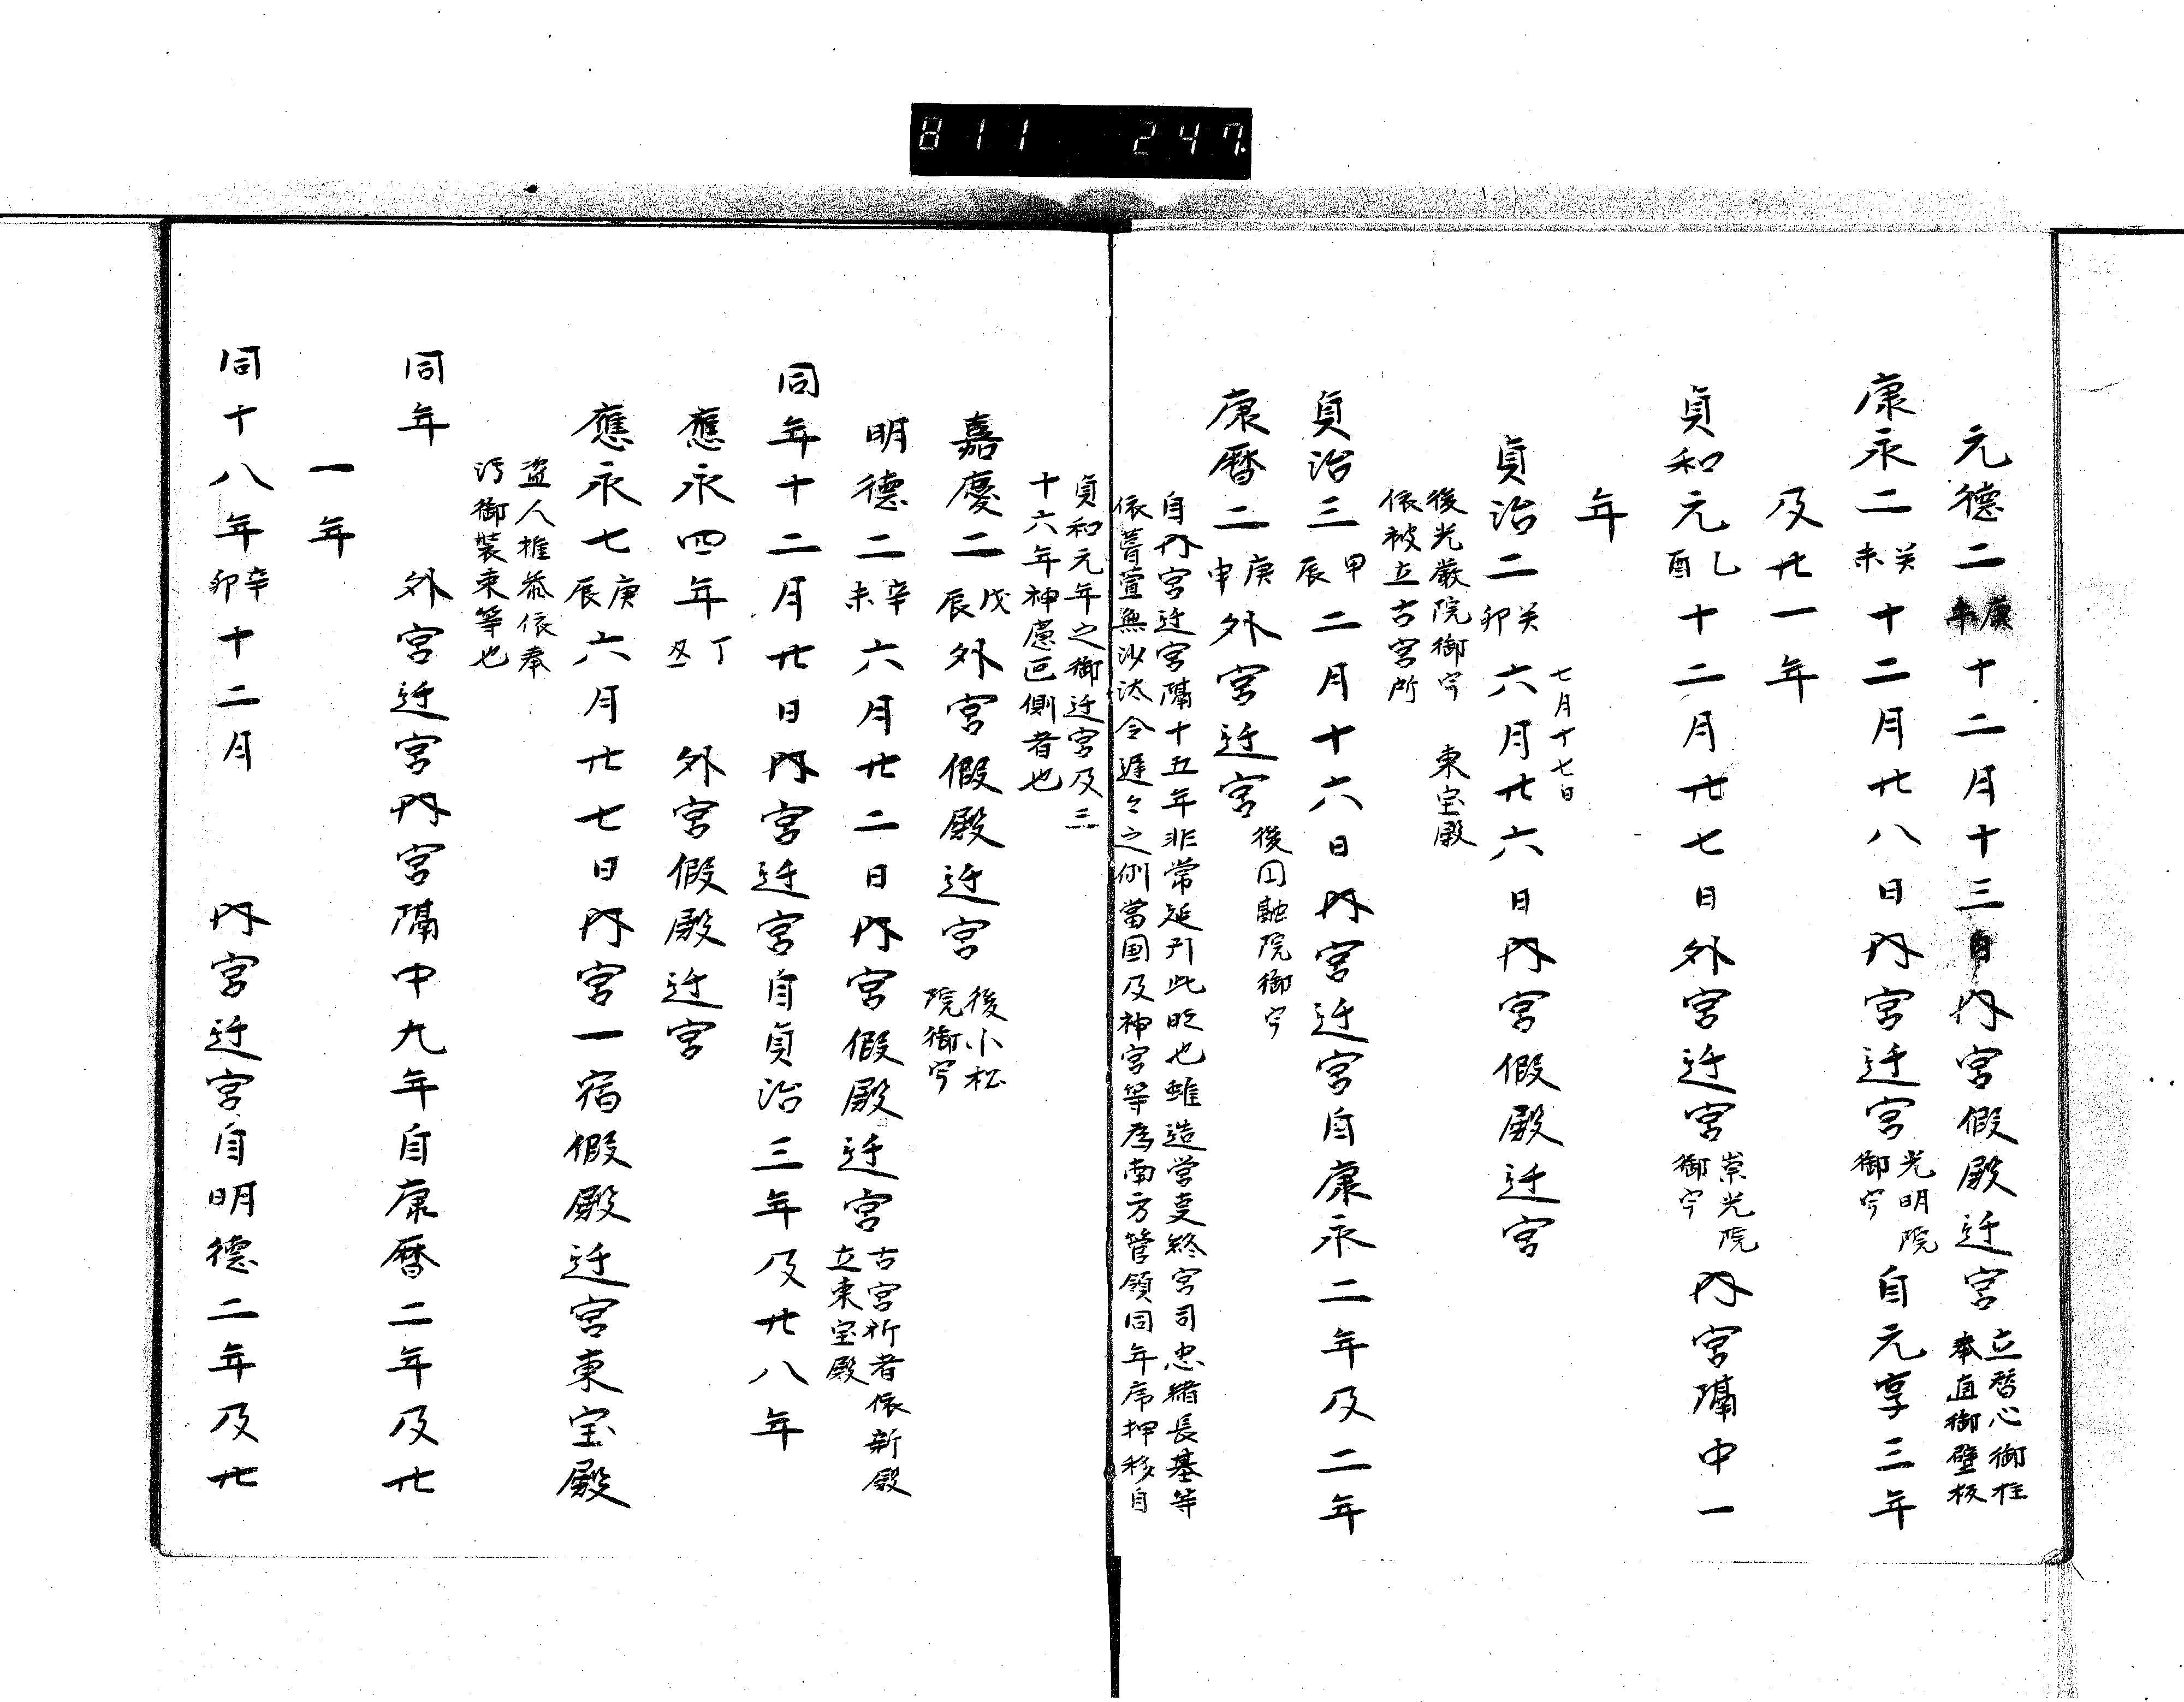 811 247
元徳二庚午十二月十三日内宮假殿迁宮立替心御柱
奉直御壁板
康永二癸未十二月廿八日内宮迁宮光明院
御宇自元享三年
及廿一年
貞和元乙酉十二月廿七日外宮迁宮崇光院
御宇内宮隔中一
年
七月十七日
貞治二癸卯六月廿六日内宮假殿迁宮
後光嚴院御宇 東宝殿
依被立古宮所
貞治三甲辰二月十六日内宮迁宮自康永二年及二年
康暦二庚申外宮迁宮後円融院御宇
自内宮迁宮隔十五年非常延引此也雖造営更終宮司忠緒長基等
依萱無沙汰令遅々之例當国及神宮等為南方管領同年序押移自
貞和元年之御迁宮及三
十六年神慮叵側者也
嘉慶二戊辰外宮假殿迁宮後小松
院御宇
明徳二辛未六月廿二日内宮假殿迁宮古宮祈者依新殿
立東宝殿
同年十二月廿日内宮迁宮自貞治三年及廿八年
應永四年丁丑 外宮假殿迁宮
應永七庚辰六月廿七日内宮一宿假殿迁宮東宝殿
盗人推参依奉
汚御装束等也
同年 外宮迁宮内宮隔中九年自康暦二年及廿
一年
同十八年辛卯十二月 内宮迁宮自明徳二年及廿